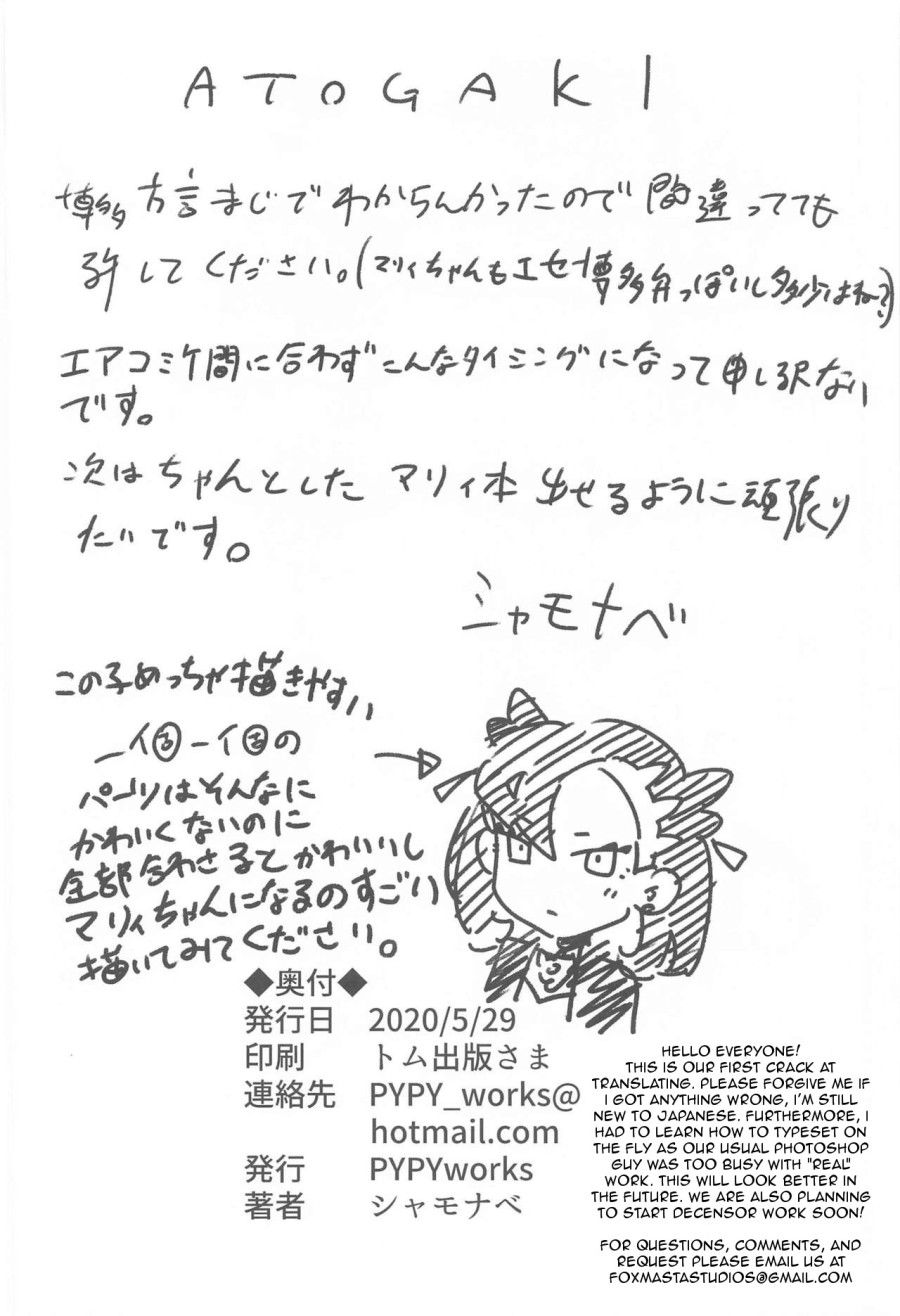 ATOGAKI
博多方言まじでわからんかったので間違ってても
許してください。(マリィちゃんもエセ博多弁っぽいし多少はね?)
エアコミケ間に合わずこんなタイミングになって申し訳ない
です。
次はちゃんとしたマリィ本出せるように頑張り
たいです。
シャモナベ
この子めっちゃ描きやすい
一個一個の
パーツはそんなに
かわいくないのに
全部合わさるとかわいいし
マリィちゃんになるのすごい
描いてみてください。
◆奥付◆
発行日 2020/5/29
印刷 トム出版さま
連絡先 PYPY_works@
hotmail.com
発行 PYPYworks
著者 シャモナベ
HELLO EVERYONE!
THIS IS OUR FIRST CRACK AT
TRANSLATING. PLEASE FORGIVE ME IF
I GOT ANYTHING WRONG, I'M STILL
NEW TO JAPANESE. FURTHERMORE, I
HAD TO LEARN HOW TO TYPESET ON
THE FLY AS OUR USUAL PHOTOSHOP
GUY WAS TOO BUSY WITH "REAL"
WORK. THIS WILL LOOK BETTER IN
THE FUTURE. WE ARE ALSO PLANNING
TO START DECENSOR WORK SOON!
FOR QUESTIONS, COMMENTS, AND
REQUEST PLEASE EMAIL US AT
FOXMASTASTUDIOS@GMAIL.COM